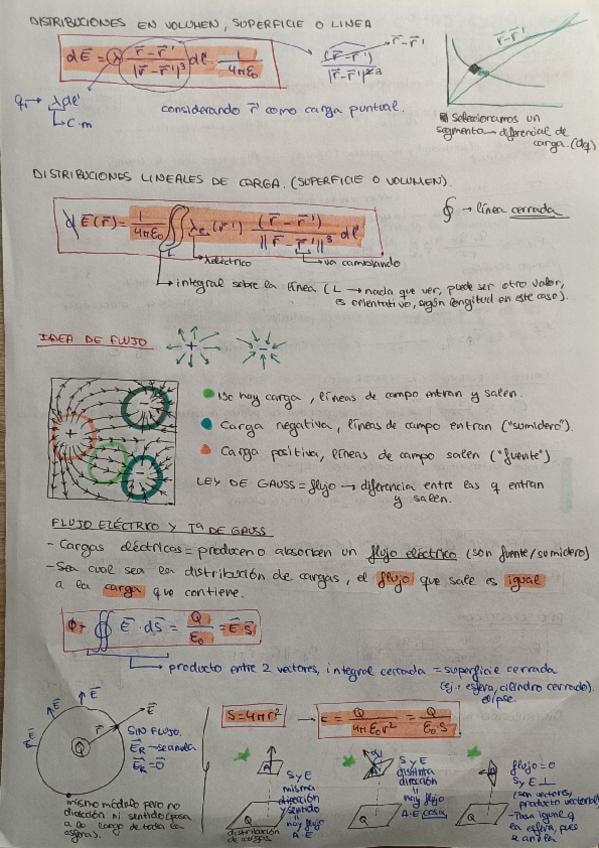 DISTRIBUCIONES EN VOLUMEN, SUPERFICIE O LINEA
dE⃗ = λ (r⃗ - r⃗')/|r⃗ - r⃗'|³ dl · 1/4πε₀
(r⃗ - r⃗')/|r⃗ - r⃗'|³
r⃗ - r⃗'
r⃗ - r⃗'
q₁ → λdl'
C·m
considerando r⃗' como carga puntual.
Seleccionamos un
segmento → diferencial de
carga. (dq)
DISTRIBUCIONES LINEALES DE CARGA. (SUPERFICIE O VOLUMEN).
E⃗(r⃗) = 1/4πε₀ ∫ λe (r⃗') (r⃗ - r⃗')/||r⃗ - r⃗'||³ dl'
∮ → línea cerrada
λeléctrico
va cambiando
integral sobre la línea (L → nada que ver, puede ser otro valor,
es orientativo, según longitud en este caso).
IDEA DE FLUJO
No hay carga, líneas de campo entran y salen.
Carga negativa, líneas de campo entran ("sumidero").
Carga positiva, líneas de campo salen ("fuente")
LEY DE GAUSS = flujo → diferencia entre las q entran
y salen.
FLUJO ELÉCTRICO Y Tª DE GAUSS
- Cargas eléctricas = producen o absorben un flujo eléctrico (son fuente/sumidero)
- Sea cual sea la distribución de cargas, el flujo que sale es igual
a la carga que contiene.
∯ E⃗ · dS⃗ = Q/ε₀ = E⃗·S⃗
producto entre 2 vectores, integral cerrada = superficie cerrada
(ej.: esfera, cilindro cerrado).
elipse.
E⃗
E⃗
E⃗
E⃗
r⃗
Q
SIN FLUJO.
E⃗R → se anula
E⃗R = 0⃗
mismo módulo pero no
dirección ni sentido (pasa
a lo largo de toda la
esfera).
S = 4πr² → E = Q/4πε₀r² = Q/ε₀S
A
Q
distribución
de cargas
S y E
misma
dirección
y sentido
=
hay flujo
A·E
Q
S y E
distinta
dirección
=
hay flujo
A·E cosα
Q
flujo = 0
S y E ⊥
(son vectores,
producto vectorial)
- Pasa igual q
la esfera, pues
se anula